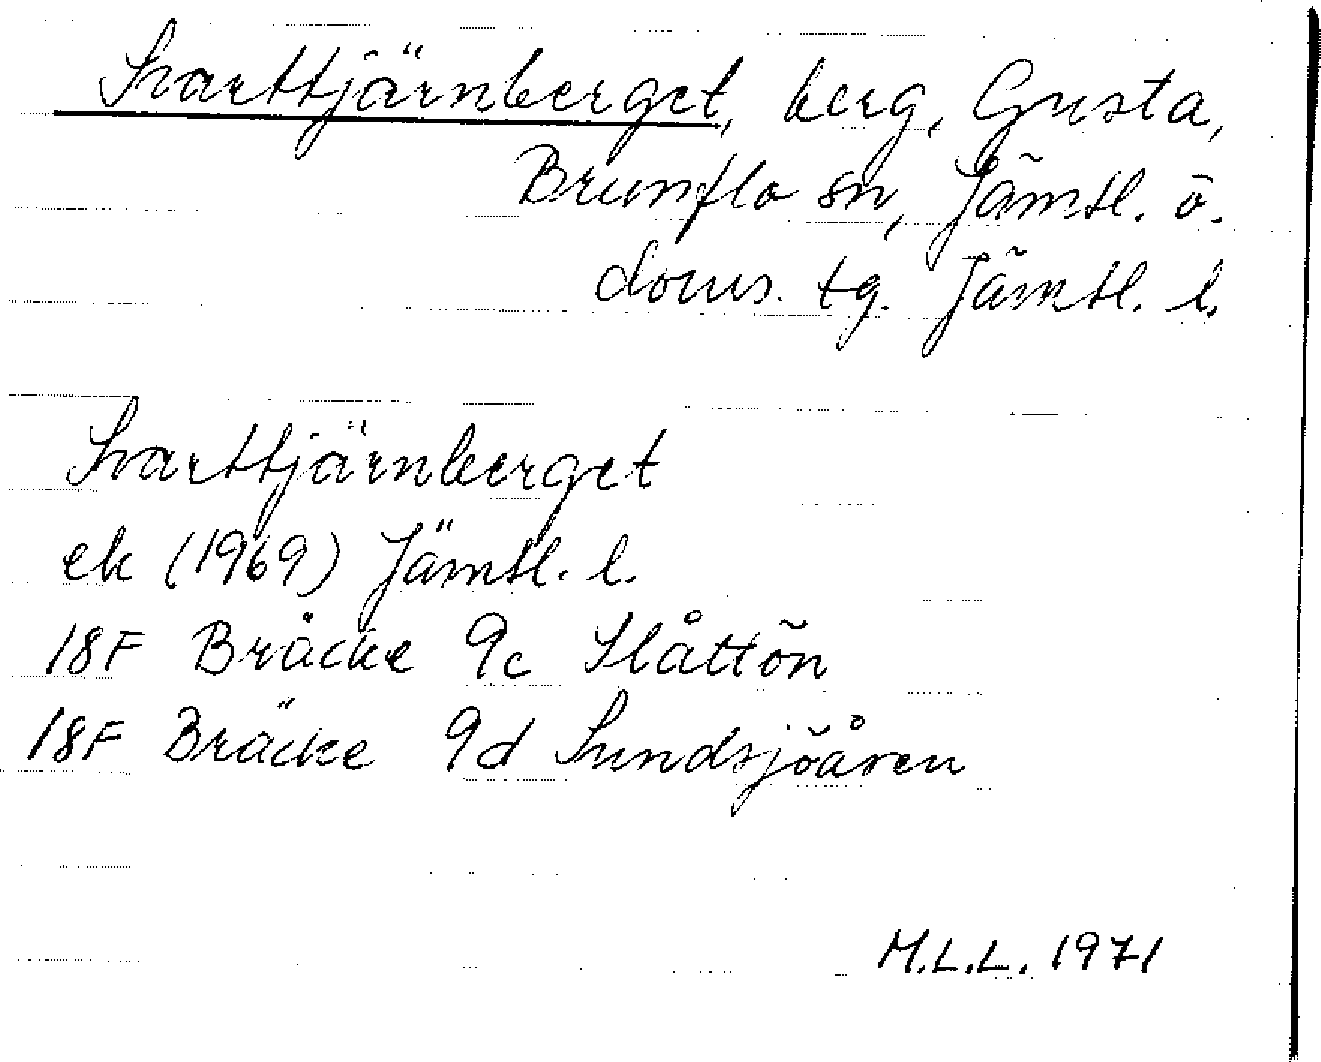 Svarttjärnberget, berg, Gusta,
Brunflo sn, Jämtl. ö.
doms. tg. Jämtl. l.
Svarttjärnberget
ek (1969) Jämtl. l.
18F Bräcke 9c Slåttön
18F Bräcke 9d Sundsjöåsen
M.L.L. 1971